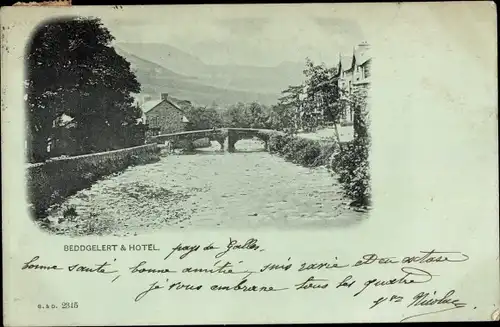 BEDDGELERT & HOTEL.
pays de Galles
bonne santé, bonne amitié,
je vous embrasse tous les quatre
G. & D. 2315
Nicolas